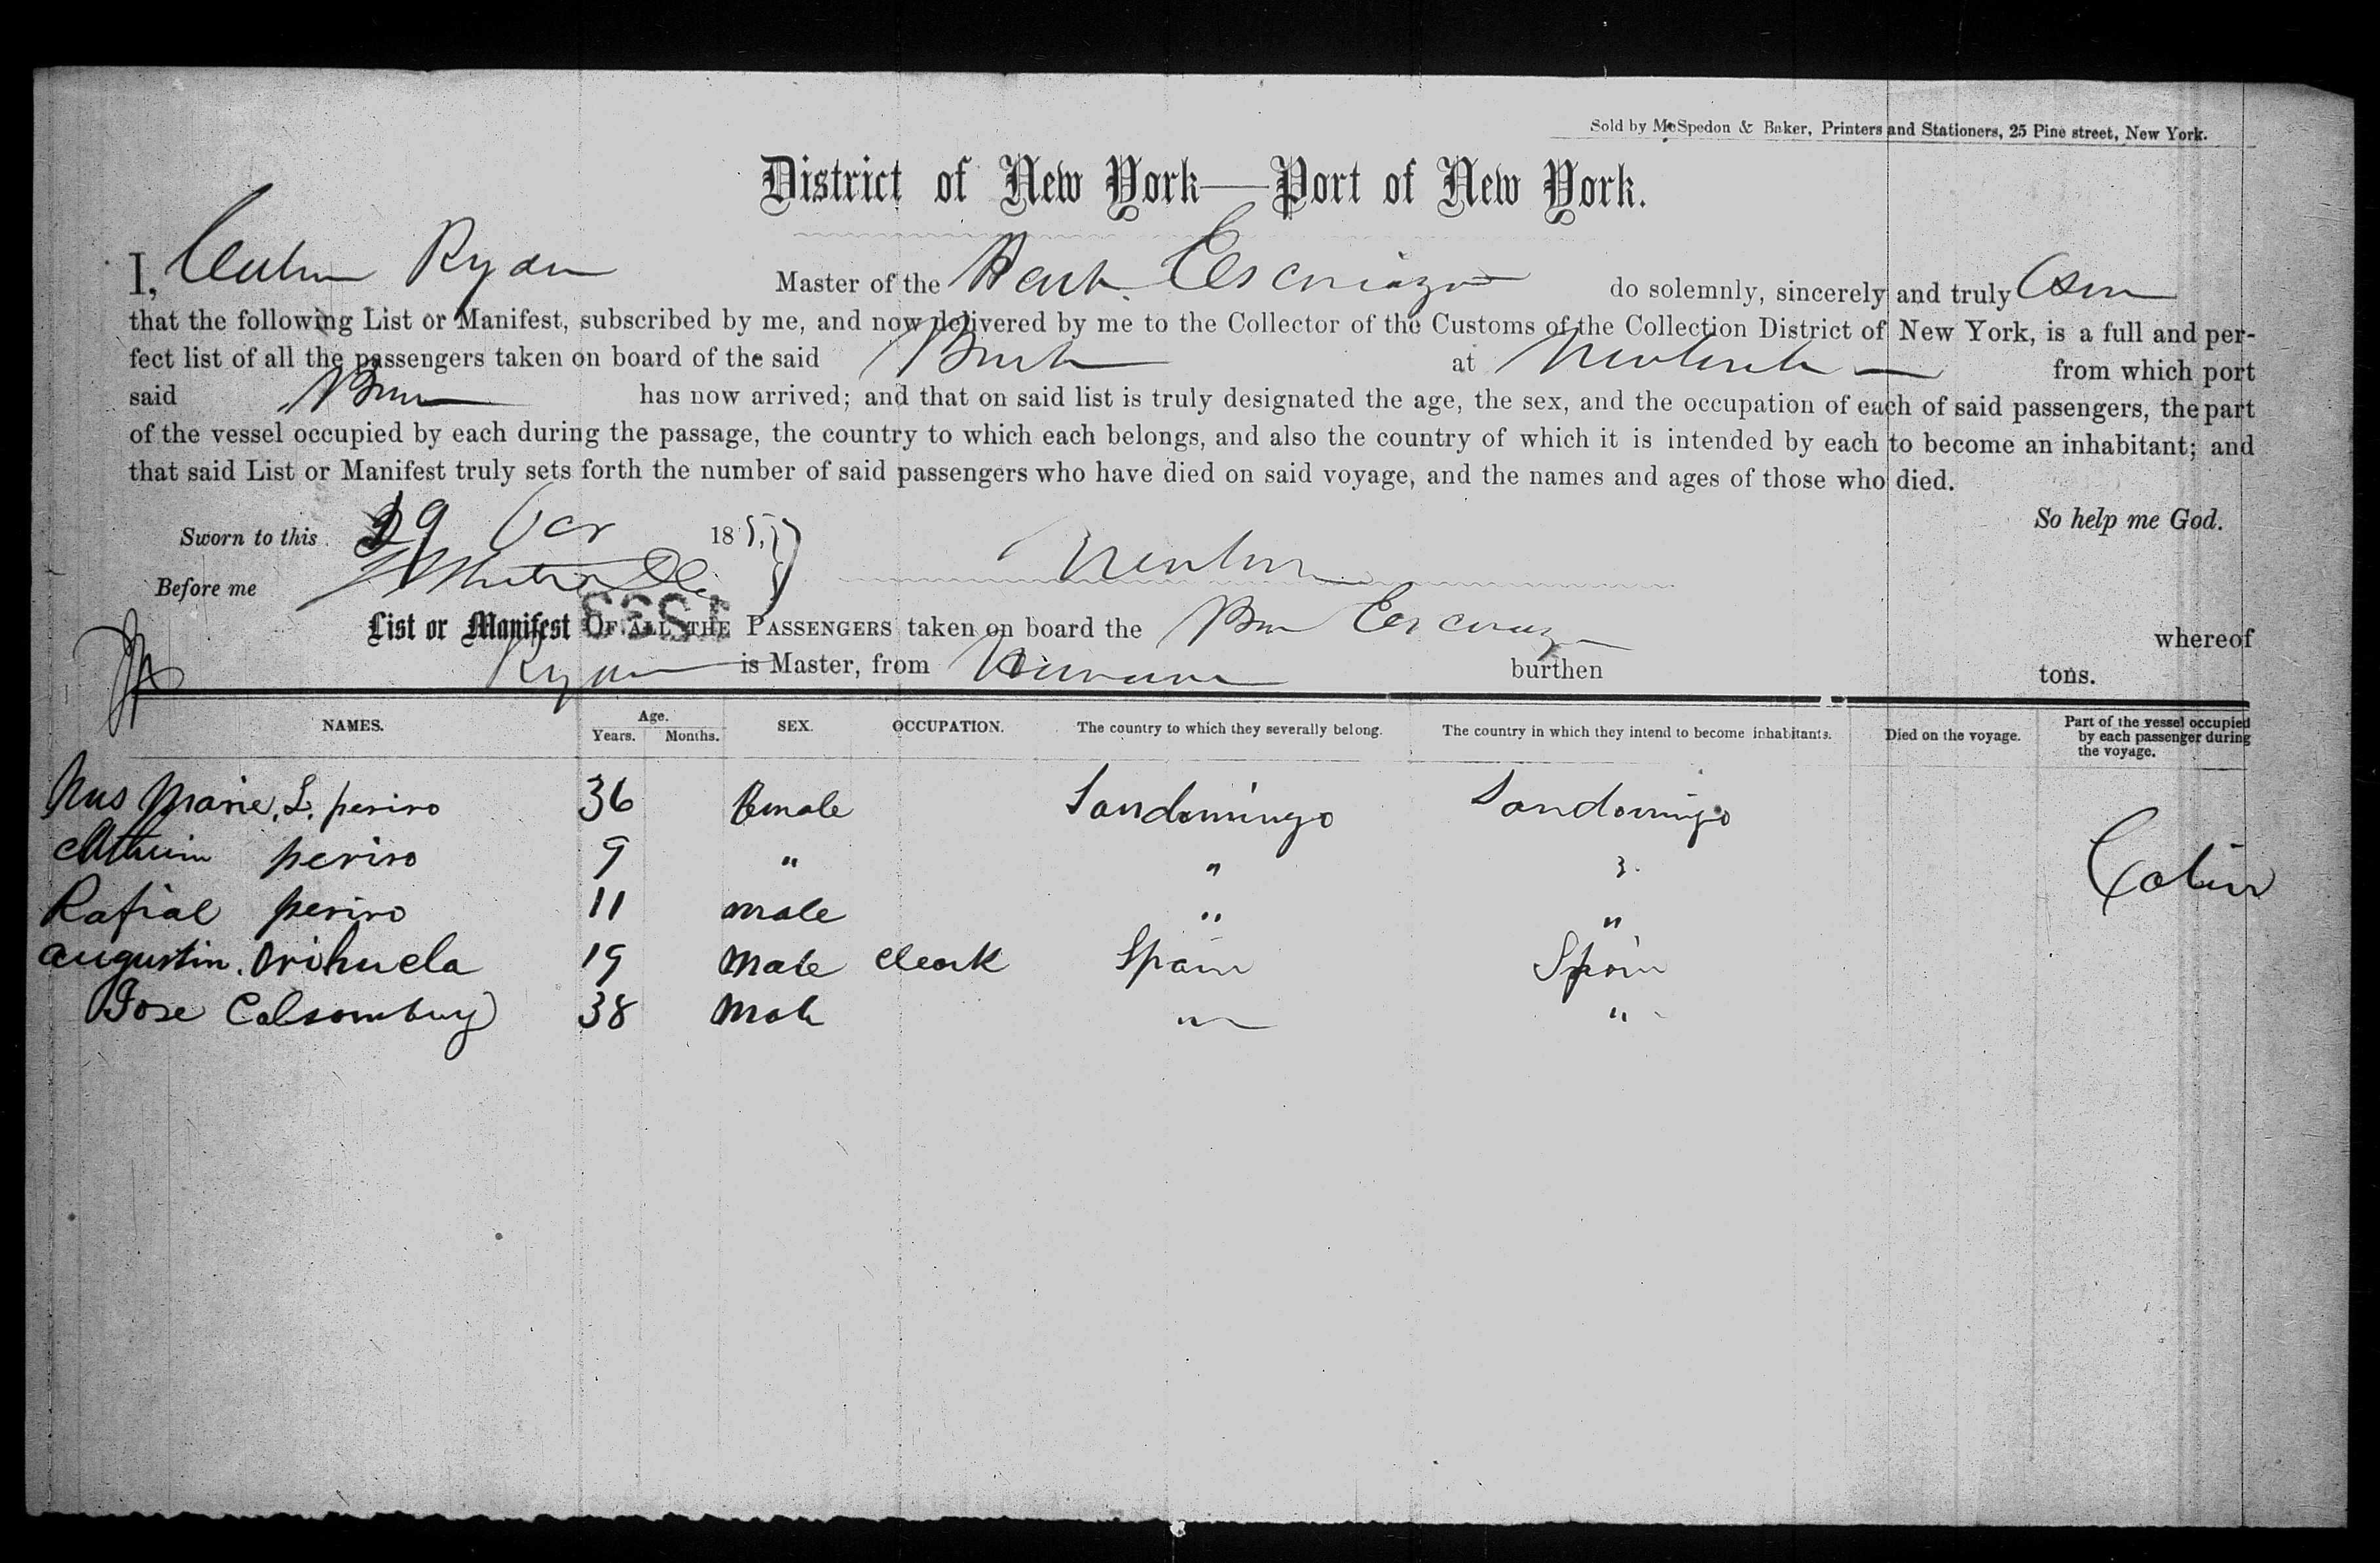 Sold by McSpedon & Baker, Printers and Stationers, 25 Pine street, New York.
District of New York—Port of New York.
I, Ryder Master of the Bark do solemnly, sincerely and truly
that the following List or Manifest, subscribed by me, and now delivered by me to the Collector of the Customs of the Collection District of New York, is a full and per-
fect list of all the passengers taken on board of the said Bark at from which port
said has now arrived; and that on said list is truly designated the age, the sex, and the occupation of each of said passengers, the part
of the vessel occupied by each during the passage, the country to which each belongs, and also the country of which it is intended by each to become an inhabitant; and
that said List or Manifest truly sets forth the number of said passengers who have died on said voyage, and the names and ages of those who died.
So help me God.
Sworn to this 185
Before me
List or Manifest OF ALL THE PASSENGERS taken on board the whereof
is Master, from burthen tons.
NAMES. Age. Years. Months. SEX. OCCUPATION. The country to which they severally belong. The country in which they intend to become inhabitants. Died on the voyage. Part of the vessel occupied by each passenger during the voyage.
Marie. L. periro 36 female Sandomingo Sandomingo
periro 9 " " "
Rafial periro 11 male " "
augustin. Orihuela 19 male cleark Spain Spain
Jose 38 male " "